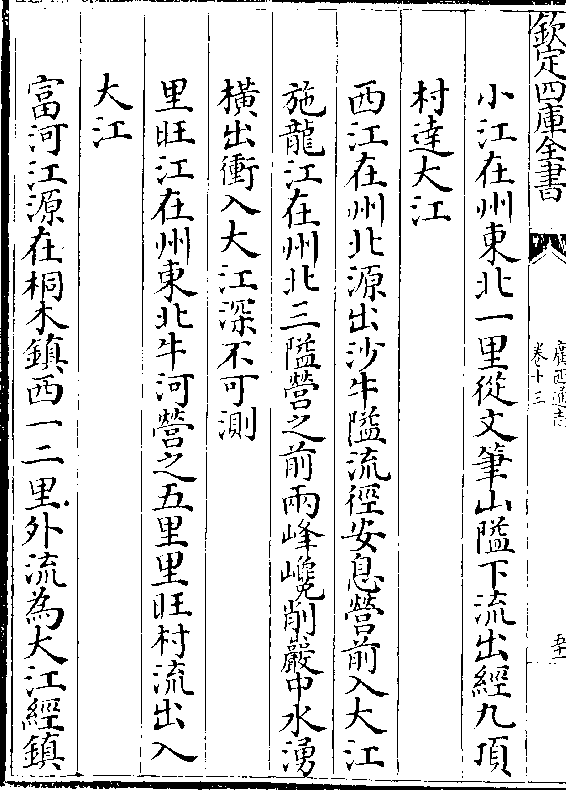 欽定四庫全書
廣西通志
卷十三
小江在州東北一里從文筆山隘下流出經九項
村達大江
西江在州北源出沙牛隘流徑安息營前入大江
施龍江在州北三隘營之前兩峰巉削巖中水湧
橫出衝入大江深不可測
里旺江在州東北牛河營之五里里旺村流出入
大江
富河江源在桐木鎮西一二里外流為大江經鎮